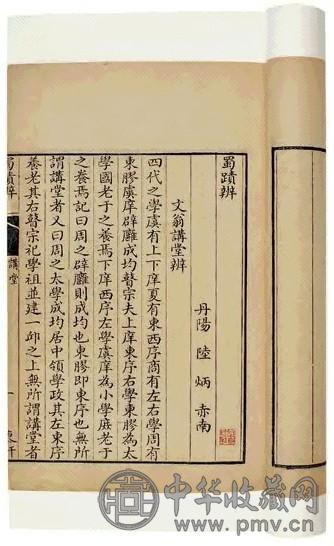 蜀蹟辨
丹陽 陸炳 赤南
文翁講堂辨
四代之學虞有上下庠夏有東西序商有左右學周有
東膠虞庠辟廱成均瞽宗夫上庠東序右學東膠為太
學國老于之養下庠西序左學虞庠為小學庶老于
之養焉記曰周之辟廱則成均也東膠即東序也無所
謂講堂者又曰周之太學成均居中領學政其左東序
養老其右瞽宗祀學祖並建一邱之上無所謂講堂者
蜀蹟辨 講堂 一
中华收藏网
www.pmv.cn